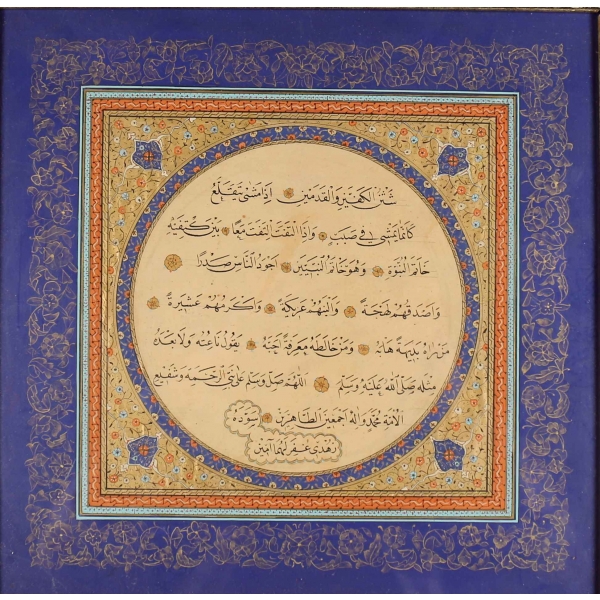 شثن الكفين والقدمين اذا مشى تقلع
كانما يمشي في صبب واذا التفت التفت معا بين كتفيه
خاتم النبوة وهو خاتم النبيين اجود الناس صدرا
واصدقهم لهجة والينهم عريكة واكرمهم عشيرة
من راه بديهة هابه ومن خالطه معرفة احبه يقول ناعته ولا بعده
مثله صلى الله عليه وسلم اللهم صل وسلم على نبي الرحمة وشفيع
الامة محمد واله اجمعين الطاهرين سوده
زهدي غفر لهما آمين